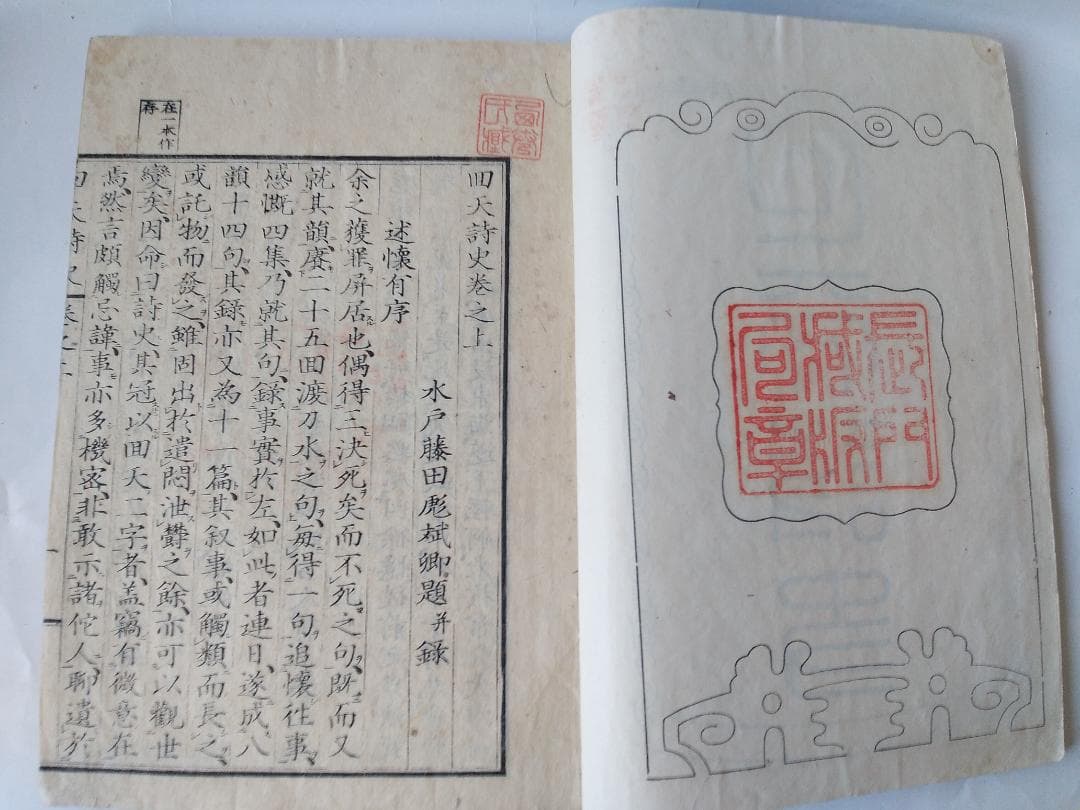 囘天詩史卷之上
水戶藤田彪斌卿題并錄
述懷有序
余之獲罪屏居也、偶得三決死矣而不死之句、既而又
就其韻、賡二十五囘渡刀水之句、每得一句、追懷往事、
感慨四集、乃就其句、錄事實於左、如此者連日、遂成八
韻十四句、其錄亦又為十一篇、其叙事、或觸類而長之、
或託物而發之、雖固出於遣悶泄鬱之餘、亦可以觀世
變矣、因命曰詩史、其冠以囘天二字者、盖竊有微意在
焉、然言頗觸忌諱、事亦多機密、非敢示諸佗人、聊遺於
在一本作
存